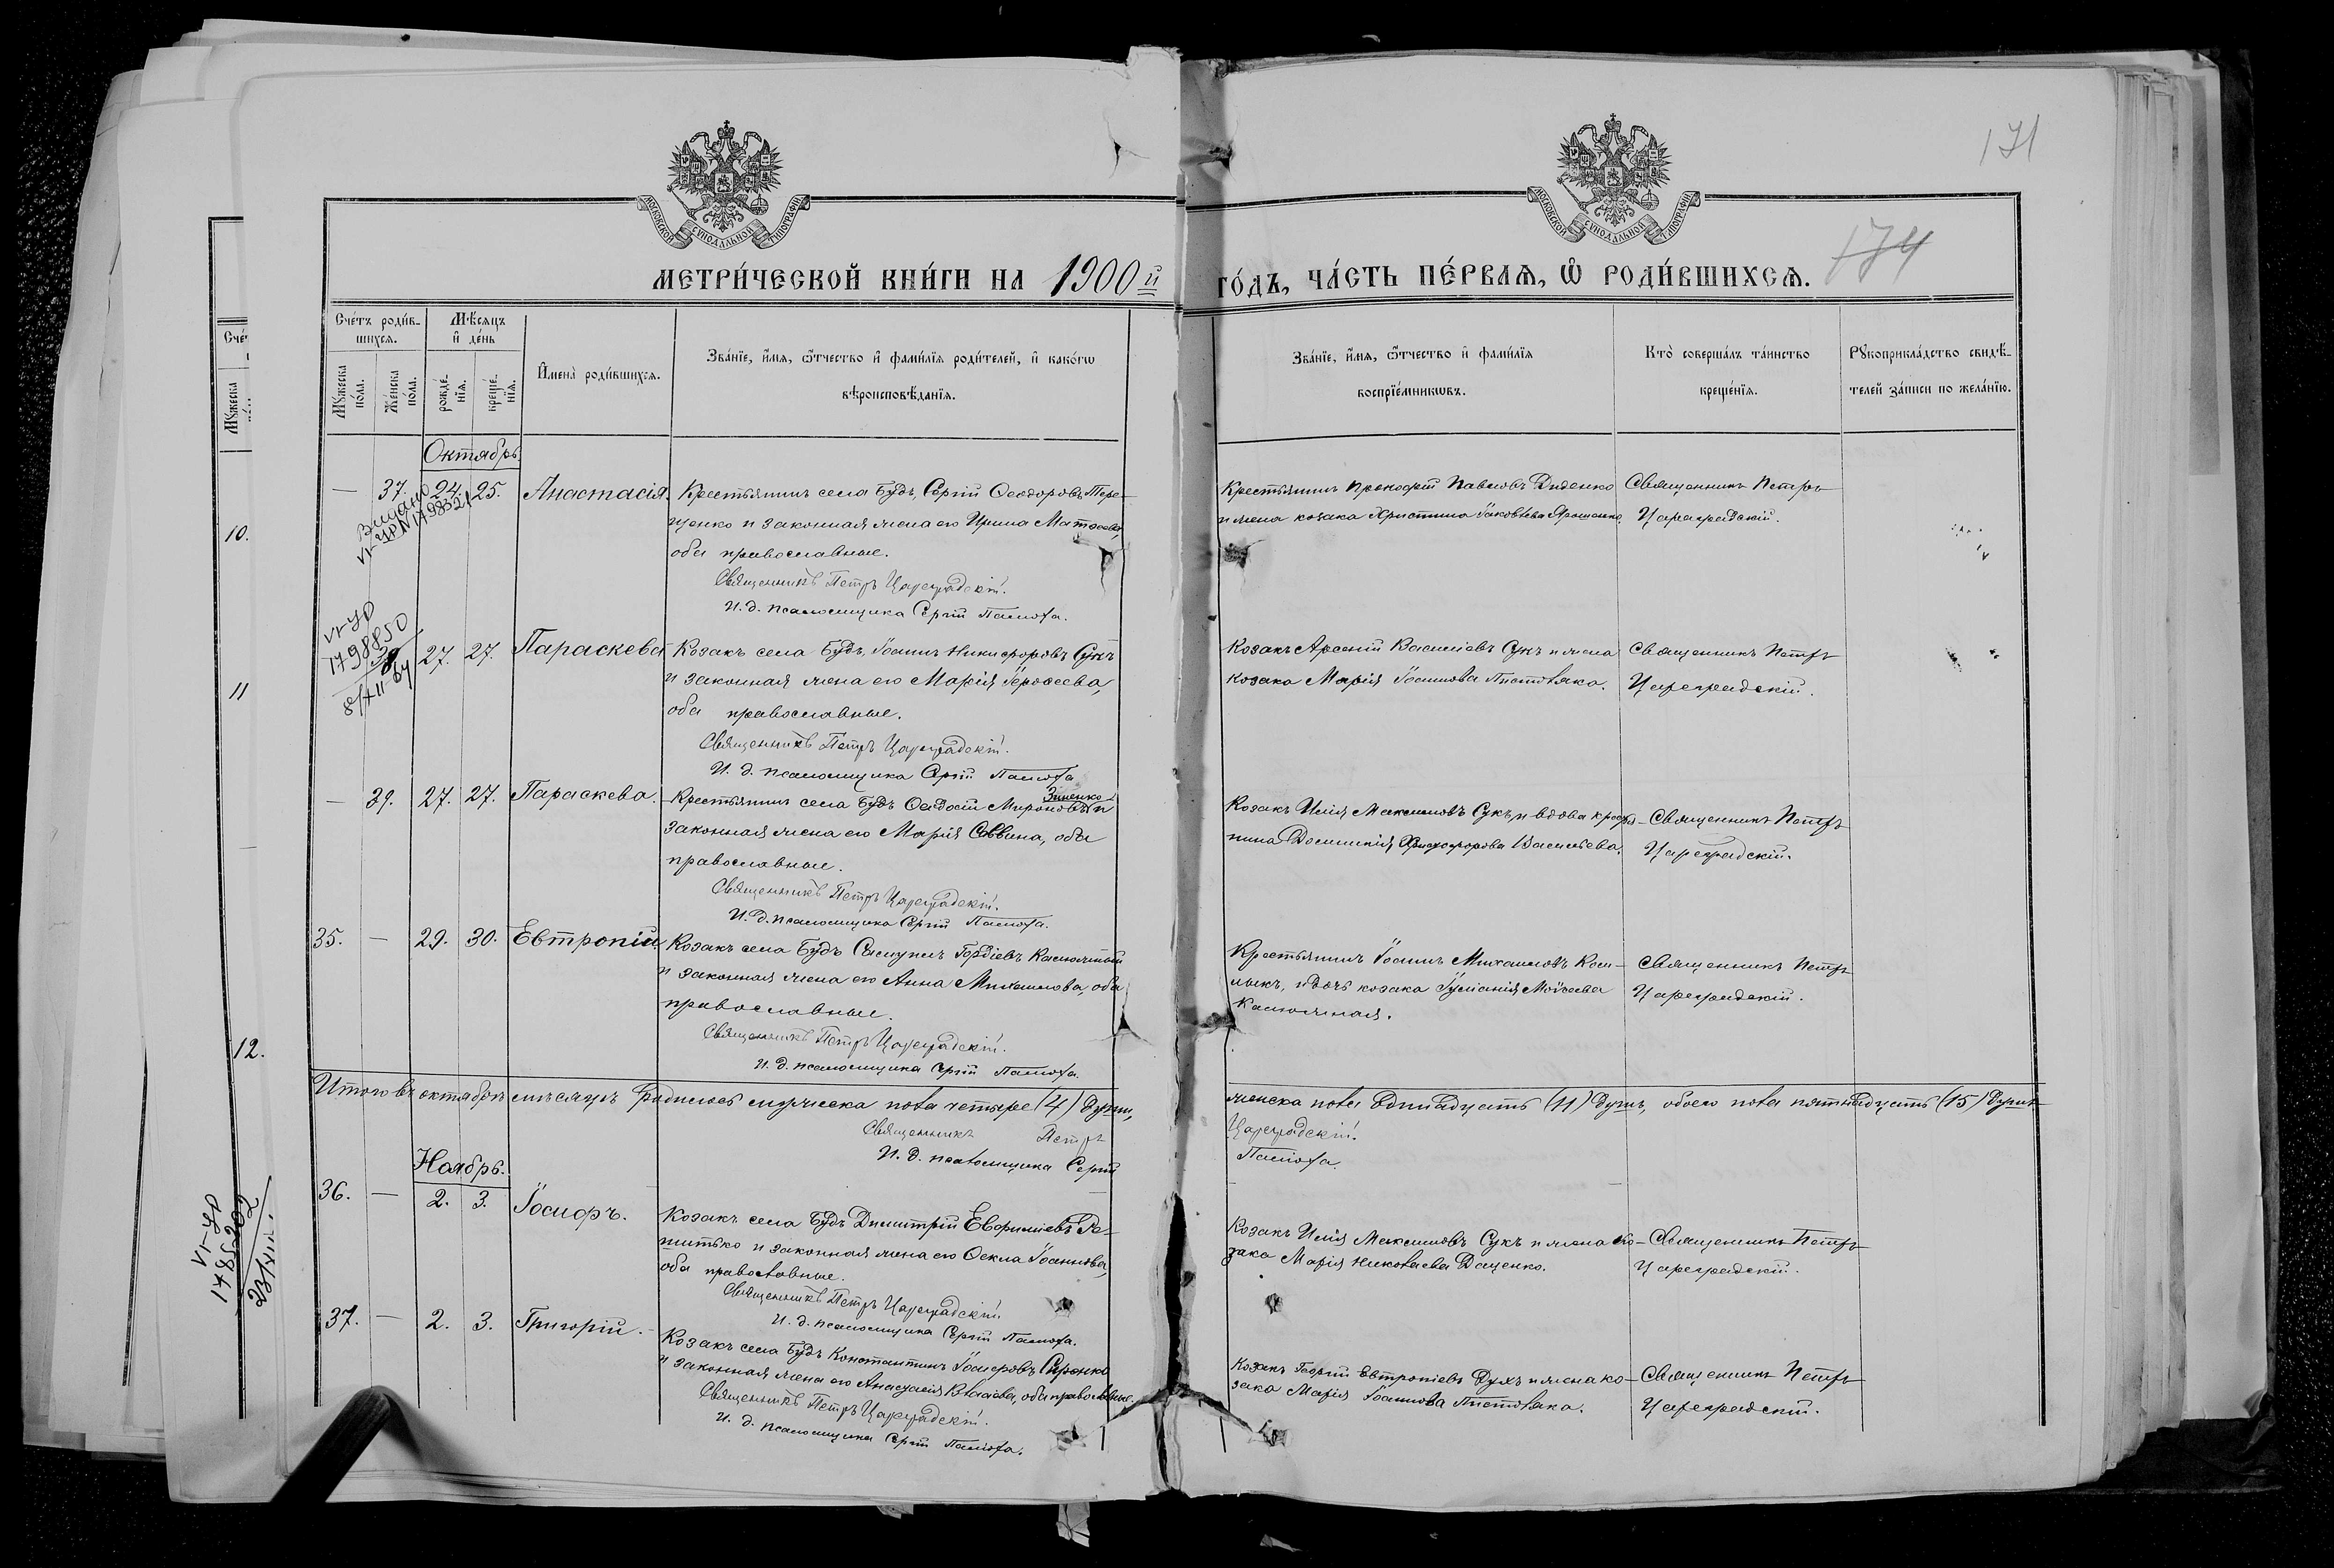 171
МОСКОВСКОЙ СѴНОДАЛЬНОЙ ТИПОГРАФІИ
МОСКОВСКОЙ СѴНОДАЛЬНОЙ ТИПОГРАФІИ
174
МЕТРИ́ЧЕСКОЙ КНИ́ГИ НА 1900й ГО́ДЪ, ЧА́СТЬ ПЕ́РВАѦ, Ѿ РОДИ́ВШИХСѦ.
Сче́тъ роди́в-
шихсѧ.
Мꙋ́жеска по́ла.
Же́нска по́ла.
Мѣ́сѧцъ
и҆ де́нь
рожде́-
нїѧ.
креще́-
нїѧ.
И҆мена̀ роди́вшихсѧ.
Зва́нїе, и҆́мѧ, ѻ҆́тчество и҆ фами́лїѧ роди́телей, и҆ како́гѡ
вѣроисповѣ́данїѧ.
Зва́нїе, и҆́мѧ, ѻ҆́тчество и҆ фами́лїѧ
воспрїе́мникѡвъ.
Кто̀ соверша́лъ та́инство
креще́нїѧ.
Рꙋкоприкла́дство свидѣ́-
телей за́писи по жела́нїю.
Октябрь.
— 37. 24. 25. Анастасія.
Крестьянинъ села Будъ, Сергій Ѳеодоровъ Тере-
щенко и законная жена его Ирина Матѳеева,
оба православные.
Священникъ Петръ Цареградскій.
И. д. псаломщика Сергій
Крестьянинъ Прокофій Павловъ Диденко
и жена козака Христина Іаковлева Ярошенко.
Священникъ Петръ
Цареградскій.
VI-УР
1798850
8/XII 64
27. 27. Параскева
Козакъ села Будъ, Іоаннъ Никифоровъ Сукъ
и законная жена его Марія Іероѳеева,
оба православные.
Священникъ Петръ Цареградскій.
И. д. псаломщика Сергій
Козакъ Арсеній Василіевъ Сукъ и жена
козака Марія Іоаннова Пистовяка.
Священникъ Петръ
Цареградскій.
— 39. 27. 27. Параскева.
Крестьянинъ села Будъ Ѳеодосій Мироновъ Зиненко и
законная жена его Марія Саввина, оба
православные.
Священникъ Петръ Цареградскій.
И. д. псаломщика Сергій
Козакъ Илія Максимовъ Сукъ и вдова крестья-
нина Домникія Христофорова Васильева.
Священникъ Петръ
Цареградскій.
35. — 29. 30. Евтропій.
Козакъ села Будъ Самуилъ Гордіевъ
и законная жена его Анна Михаилова, оба
православные.
Священникъ Петръ Цареградскій.
И. д. псаломщика Сергій
Крестьянинъ Іоаннъ Михаиловъ
и дочь козака Іуліанія Моѵсеева
Священникъ Петръ
Цареградскій.
Итого въ октябрѣ мѣсяцѣ родилось мужеска пола четыре (4) души, женска пола одинадцать (11) душъ, обоего пола пятнадцать (15) душъ
Священникъ Петръ Цареградскій.
И. д. псаломщика Сергій
Ноябрь.
36. — 2. 3. Іосифъ.
Козакъ села Будъ Димитрій Евфиміевъ Ре-
шитько и законная жена его Ѳекла Іоаннова,
оба православные.
Священникъ Петръ Цареградскій
И. д. псаломщика Сергій
Козакъ Илія Максимовъ Сукъ и жена ко-
зака Марія Николаева Даценко.
Священникъ Петръ
Цареградскій.
37. — 2. 3. Григорій.
Козакъ села Будъ Константинъ Іосифовъ
и законная жена его Анастасія Власіева, оба православные.
Священникъ Петръ Цареградскій.
И. д. псаломщика Сергій
Козакъ Георгій Евтропіевъ Духъ и жена ко-
зака Марія Іоаннова Пистовяка.
Священникъ Петръ
Цареградскій.
10.
11
12.